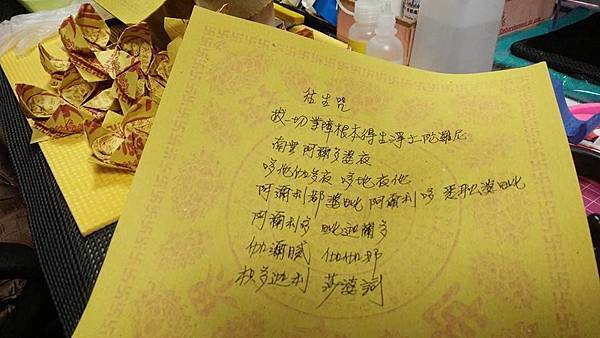 往生咒
拔一切業障根本得生淨土陀羅尼
南無阿彌多婆夜
哆他伽多夜 哆地夜他
阿彌利都婆毗 阿彌利哆 悉耽婆毗
阿彌利哆 毗迦蘭多
伽彌膩 伽伽那
枳多迦利 莎婆訶